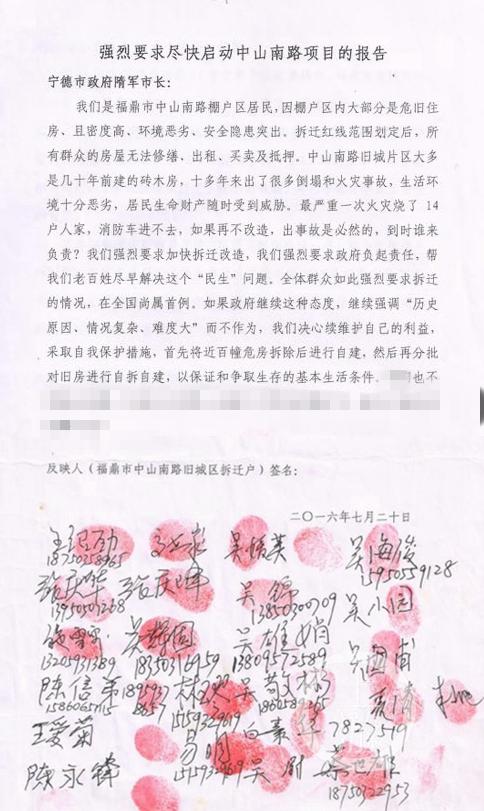 强烈要求尽快启动中山南路项目的报告
宁德市政府隋军市长：
我们是福鼎市中山南路棚户区居民，因棚户区内大部分是危旧住
房、且密度高、环境恶劣、安全隐患突出。拆迁红线范围划定后，所
有群众的房屋无法修缮、出租、买卖及抵押。中山南路旧城片区大多
是几十年前建的砖木房，十多年来出了很多倒塌和火灾事故，生活环
境十分恶劣，居民生命财产随时受到威胁。最严重一次火灾烧了 14
户人家，消防车进不去，如果再不改造，出事故是必然的，到时谁来
负责？我们强烈要求加快拆迁改造，我们强烈要求政府负起责任，帮
我们老百姓尽早解决这个“民生”问题。全体群众如此强烈要求拆迁
的情况，在全国尚属首例。如果政府继续这种态度，继续强调“历史
原因、情况复杂、难度大”而不作为，我们决心续维护自己的利益，
采取自我保护措施，首先将近百幢危房拆除后进行自建，然后再分批
对旧房进行自拆自建，以保证和争取生存的基本生活条件。 也不
反映人（福鼎市中山南路旧城区拆迁户）签名：
二〇一六年七月二十日
吴海俊
18750258965 15950559128
张庆华 吴锦 吴小园
13850300709
吴雄娟
18350316959 13809572589
陈信弟 吴敬彬
15586065115
王爱菊 7827519
陈永锋 易明 吴尉 蔡世雄
18750322953